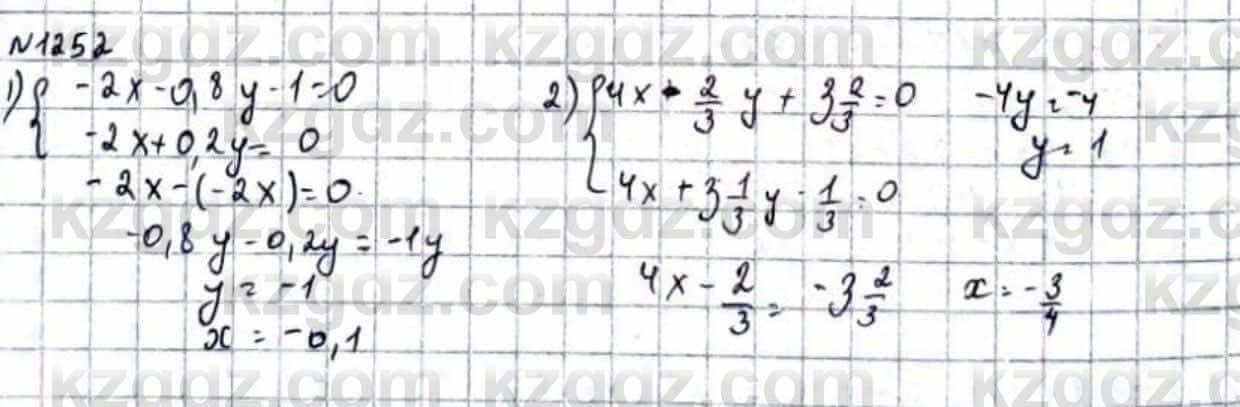 N1252
1) { -2x-0,8y-1=0
-2x+0,2y= 0
-2x-(-2x)=0
-0,8y-0,2y=-1y
y=-1
x=-0,1
2) { 4x - 2/3 y + 3 2/3 = 0
4x + 3 1/3 y - 1/3 = 0
4x - 2/3 = -3 2/3
-4y=-4
y=1
x=-3/4
kzgdz.com